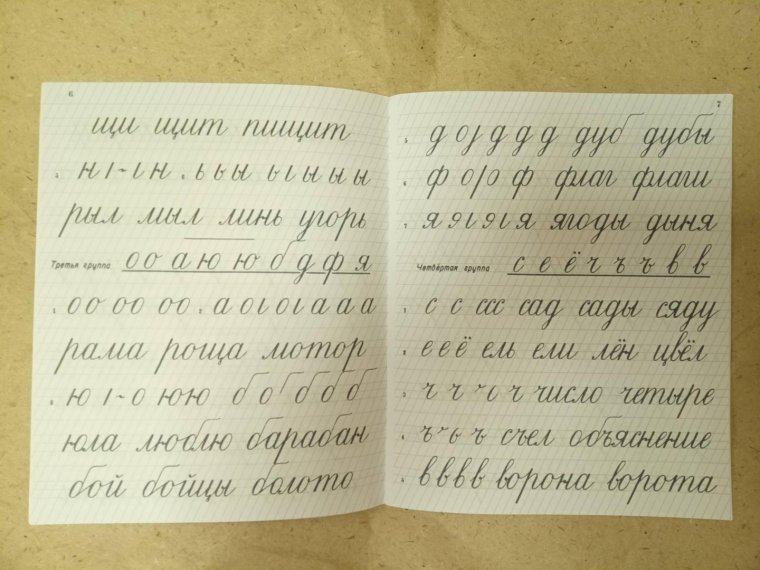 6
щи щит пищит
н ı~ı н . ь ы ы ы ы ы ы
рыл мыл линь угорь
Третья группа о о а ю ю б д ф я
о о о о о о . а о ı о ı а а а
рама роща мотор
ю ı~о ю ю б о б б б б
юла люблю барабан
бой бойцы болото
7
д о д д д дуб дубы
ф о ф флаг флаги
я я я ягоды дыня
Четвёртая группа с е ё ч ъ ъ в в
с с ссс сад сады сяду
е е ё ель ели лён цвёл
ч ч ч число четыре
ъ ь ъ съел объяснение
в в в в ворона ворота